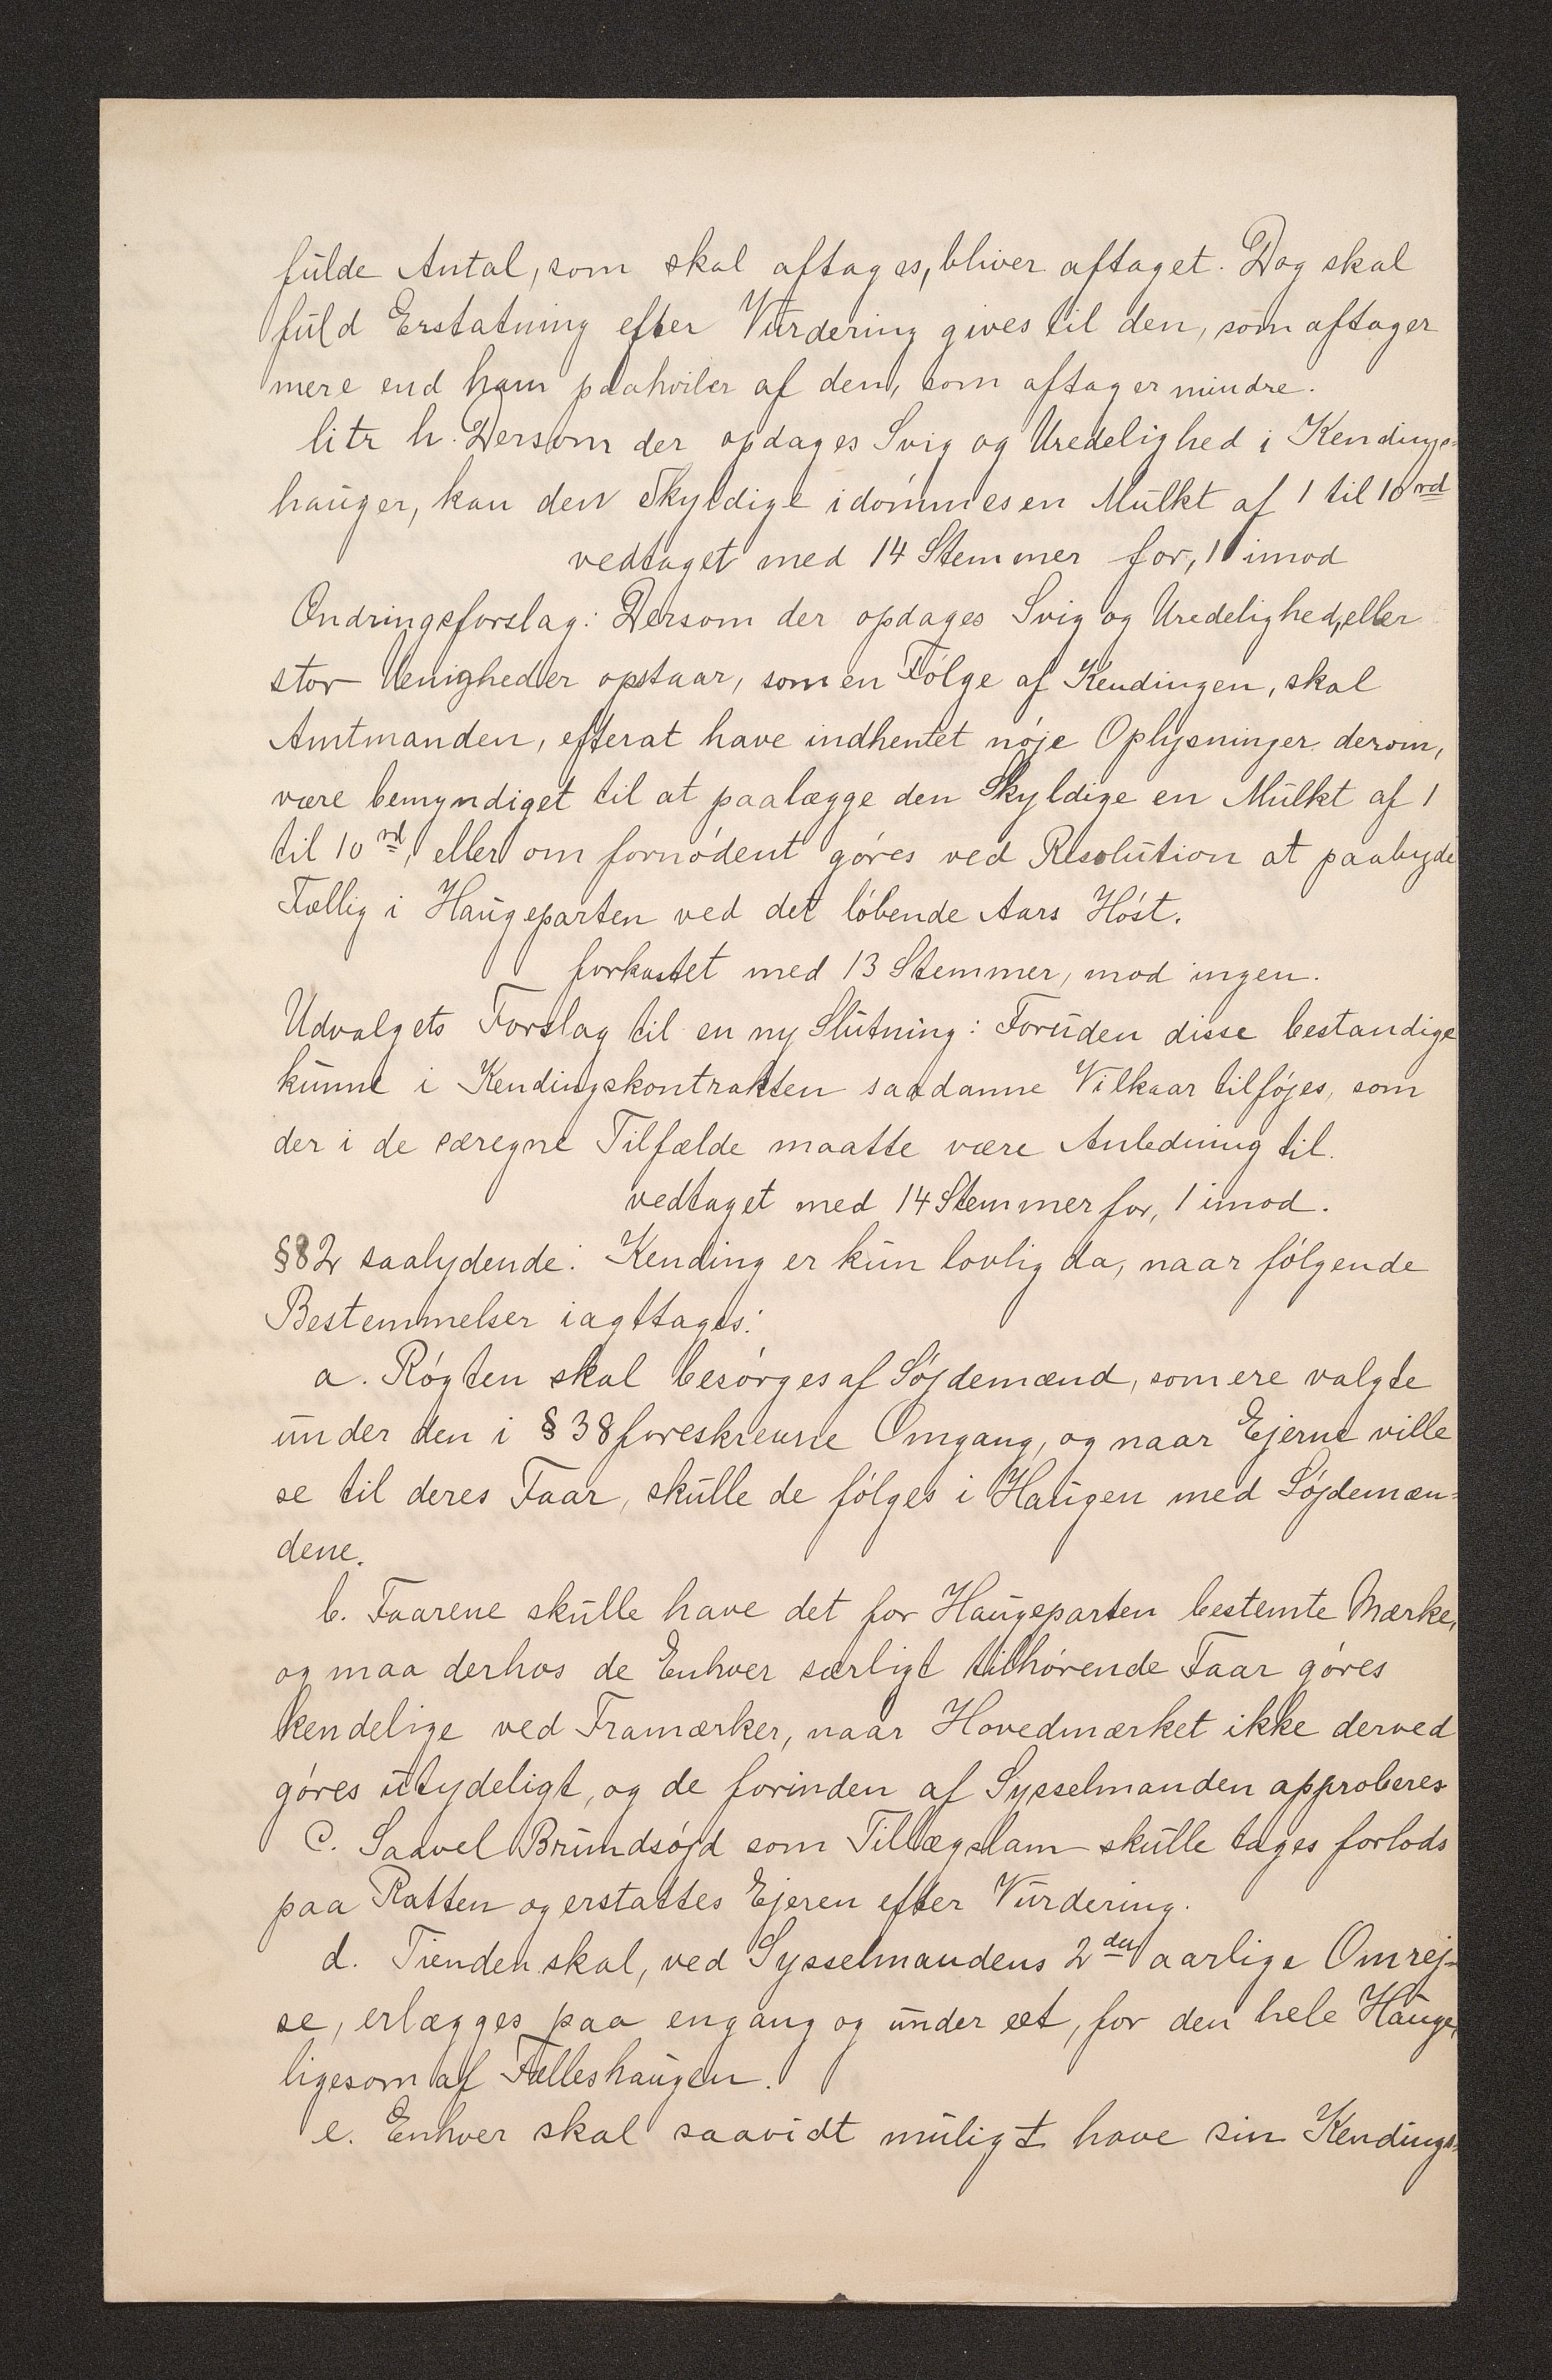 fulde Antal, som skal aftages, bliver aftaget. Dog skal
fuld Erstatning efter Vurdering gives til den, som aftager
mere end ham paahviler af den, som aftager mindre.
litr h. Dersom der opdages Svig og Uredelighed i Kendings-
hauger, kan den Skyldige idómmes en Mulkt af 1 til 10 rd
vedtaget med 14 Stemmer for, 1 imod
Ændringsforslag: Dersom der opdages Svig og Uredelighed, eller
stor Uenigheder opstaar, som en Fólge af Kendingen, skal
Amtmanden, efterat have indhentet nóje Oplysninger derom,
være bemyndiget til at paalægge den Skyldige en Mulkt af 1
til 10 rd, eller om fornódent góres ved Resolution at paabyde
Fællig i Haugeparten ved det lóbende Aars Hóst.
forkastet med 13 Stemmer, mod ingen.
Udvalgets Forslag til en ny Slutning: Foruden disse bestandige
kunne i Kendingskontrakten saadanne Vilkaar tilfójes, som
der i de særegne Tilfælde maatte være Anledning til.
vedtaget med 14 Stemmer for, 1 imod.
§82 saalydende: Kending er kun lovlig da, naar fólgende
Bestemmelser iagttages:
a. Rógten skal besórges af Sójdemænd, som ere valgte
under den i § 38 foreskrevne Omgang, og naar Ejerne ville
se til deres Faar, skulle de fólges i Haugen med Sójdemæn-
dene.
b. Faarene skulle have det for Haugeparten bestemte Mærke,
og maa derhos de Enhver særligt tilhórende Faar góres
kendelige ved Framærker, naar Hovedmærket ikke derved
góres utydeligt, og de forinden af Sysselmanden approberes
C. Saavel Brundsójd som Tillægslam skulle tages forlods
paa Ratten og erstattes Ejeren efter Vurdering.
d. Tienden skal, ved Sysselmandens 2den aarlige Omrej-
se, erlægges paa engang og under eet, for den hele Hauge,
ligesom af Fælleshaugen.
e. Enhver skal saavidt muligt have sin Kendings-